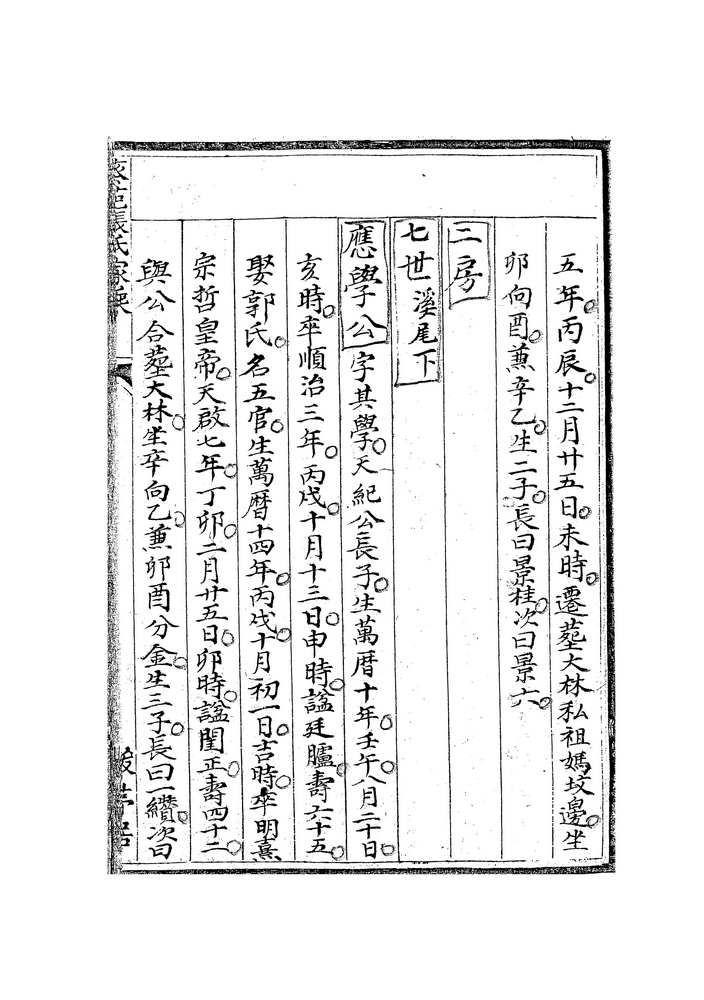 五年丙辰十二月廿五日未時遷塟大林私祖媽坟邊坐
卯向酉兼辛乙生二子長曰景桂次曰景六
二房
七世溪尾下
應學公字其學天紀公長子生萬曆十年壬午八月二十日
亥時卒順治三年丙戌十月十三日申時諡廷臚壽六十五
娶郭氏名五官生萬曆十四年丙戌十月初一日吉時卒明熹
宗哲皇帝天啟七年丁卯二月廿五日卯時諡閨正壽四十二
與公合塟大林坐辛向乙兼卯酉分金生三子長曰一纘次曰
張氏家乘